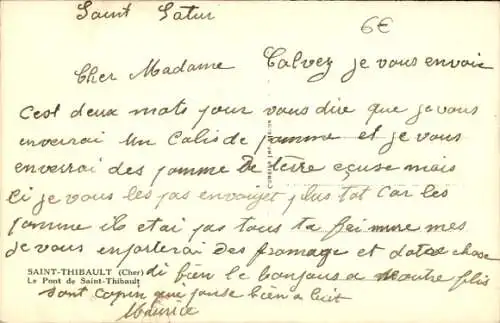 Saint Satur
6€
Cher Madame Calvez je vous envoie
cest deux mots pour vous dire que je vous
enverrai un Colis de pomme et je vous
enverrai des pomme de terre ecuse mais
si je vous les pas envoyet plus tot car les
pomme ils etai pas tous ta fei mure mes
je vous enporterai des fromage et dotre chose
SAINT-THIBAULT (Cher)
Le Pont de Saint-Thibault
di bien le bonjour a notre plis
sont copin que panse bien a lui
Maurice